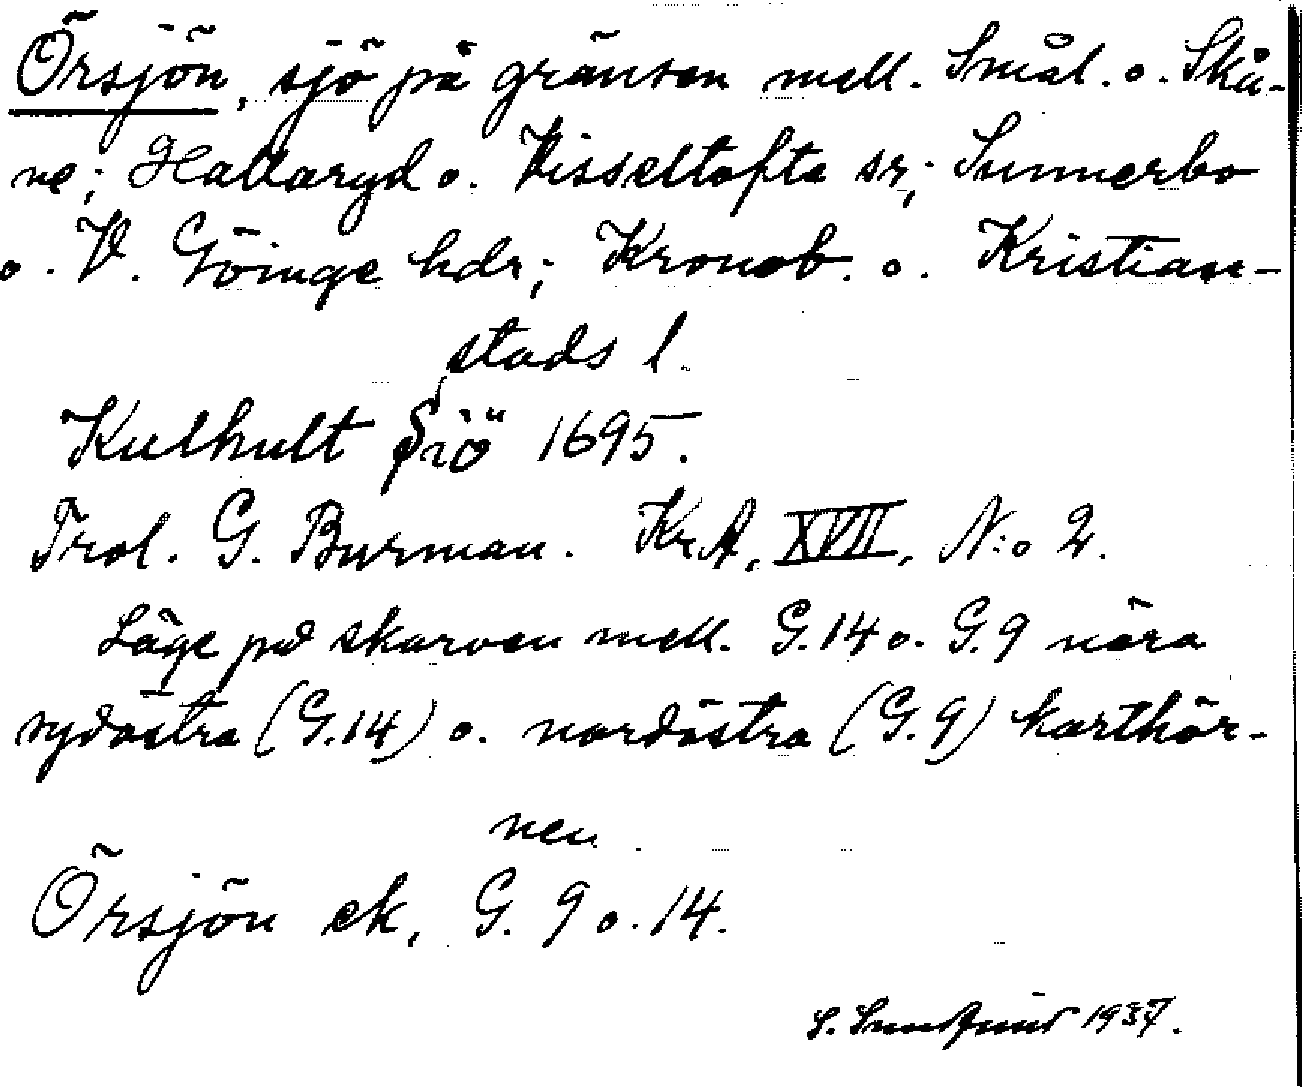 Örsjön, sjö på gränsen mell. Smål. o. Skå-
ne; Hallaryd o. Visseltofta sr; Sunnerbo
o. V. Göinge hdr; Kronob. o. Kristian-
stads l.
Kulhult Siö 1695.
Trol. G. Burman. Kr.A. XVII, N:o 2.
Läge på skarven mell. G.14 o. G.9 nära
sydöstra (G.14) o. nordöstra (G.9) karthör-
nen
Örsjön ek. G. 9 o. 14.
S. 1937.